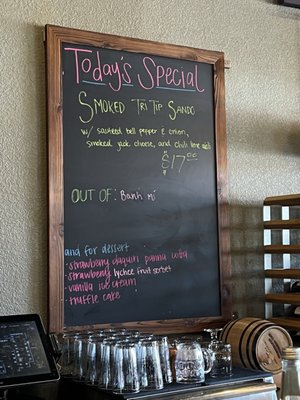 Today's Special
Smoked Tri Tip Sando
w/ sauteed bell pepper & onion,
smoked jack cheese, and chili lime aioli
$17.00
OUT OF: Banh mi
and for dessert
• strawberry daquiri panna cotta
• strawberry lychee fruit sorbet
• vanilla ice cream
• truffle cake